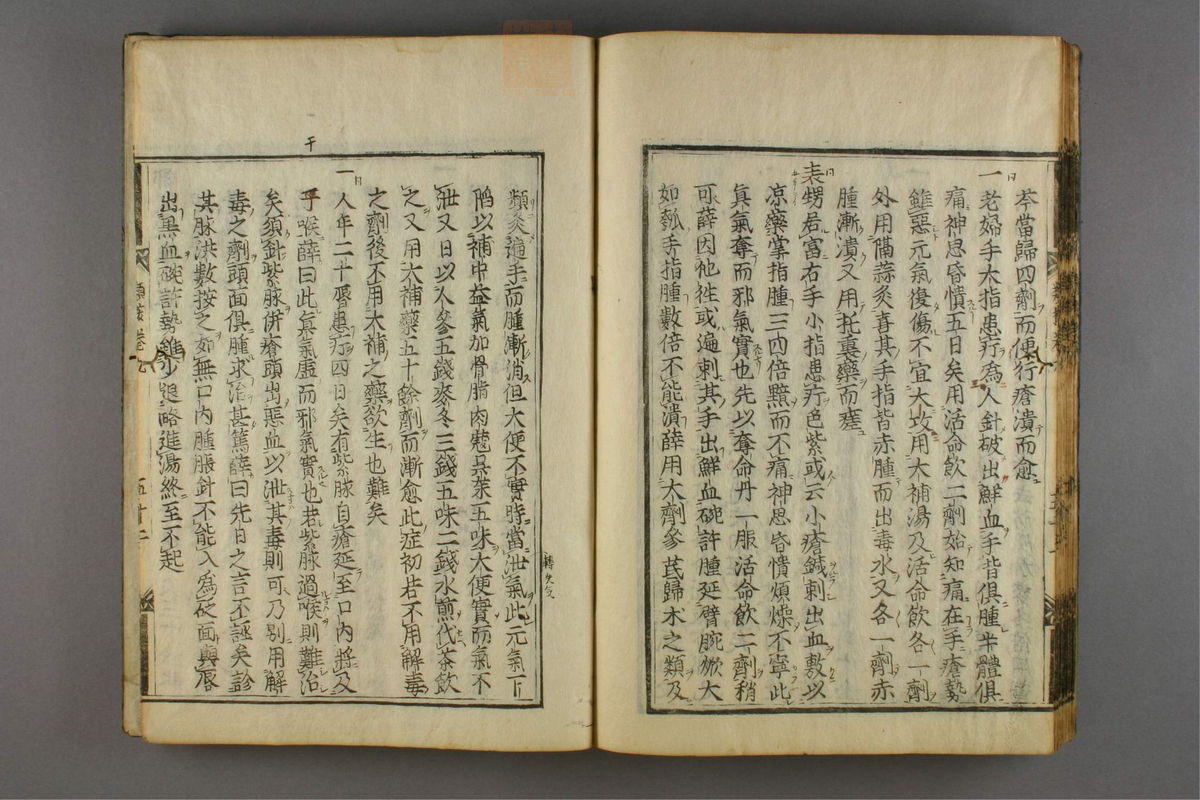 芩當歸四劑而便行瘡潰而愈
一老婦手大指患疔爲人針破出鮮血手背俱腫半體俱
痛神思昏憒五日矣用活命飲二劑始知痛在手瘡勢
雖惡元氣復傷不宜大攻用大補湯及活命飲各一劑
外用隔蒜灸喜其手指皆赤腫而出毒水又各一劑赤
腫漸潰又用托裏藥而瘥
表甥居富右手小指患疔色紫或云小瘡鍼刺出血敷以
凉藥掌指腫三四倍黯而不痛神思昏憒煩燥不寧此
眞氣奪而邪氣實也先以奪命丹一服活命飲二劑稍
可薛因他往或遍刺其手出鮮血碗許腫延臂腕漸大
如瓠手指腫數倍不能潰薛用大劑參芪歸朮之類及
頻灸遍手而腫漸消但大便不實時當泄氣此元氣下
陷以補中益氣加骨脂肉蔻吳茱五味大便實而氣不
泄又日以人參五錢麥冬三錢五味二錢水煎代茶飲
之又用大補藥五十餘劑而漸愈此症初若不用解毒
之劑後不用大補之藥欲生也難矣
一人年二十唇患疔四日矣有紫脉自瘡延至口內將及
于喉薛曰此眞氣虛而邪氣實也若紫脉過喉則難治
矣須針紫脉併瘡頭出惡血以泄其毒則可乃別用解
毒之劑頭面俱腫求治甚篤薛曰先日之言不誣矣診
其脉洪數按之如無口內腫脹針不能入爲砭面與唇
出黑血碗許勢雖少退略進湯終至不起
五十二
干